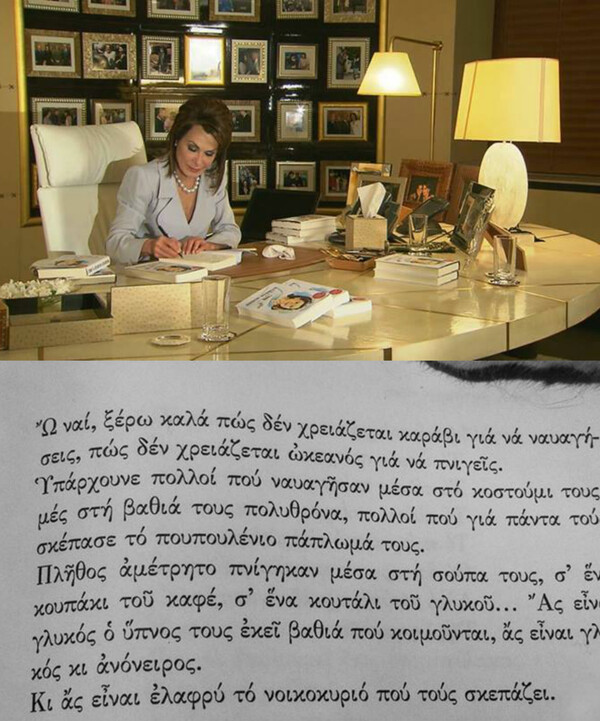 Ὢ ναί, ξέρω καλά πώς δέν χρειάζεται καράβι γιά νά ναυαγή-
σεις, πώς δέν χρειάζεται ὠκεανός γιά νά πνιγεῖς.
Ὑπάρχουνε πολλοί πού ναυαγῆσαν μέσα στό κοστούμι τους
μές στή βαθιά τους πολυθρόνα, πολλοί πού γιά πάντα τού
σκέπασε τό πουπουλένιο πάπλωμά τους.
Πλῆθος ἀμέτρητο πνίγηκαν μέσα στή σούπα τους, σ' ἕν
κουπάκι τοῦ καφέ, σ' ἕνα κουτάλι τοῦ γλυκοῦ... Ἂς εἶν
γλυκός ὁ ὕπνος τους ἐκεῖ βαθιά πού κοιμοῦνται, ἄς εἶναι γλ
κός κι ἀνόνειρος.
Κι ἄς εἶναι ἐλαφρύ τό νοικοκυριό πού τούς σκεπάζει.